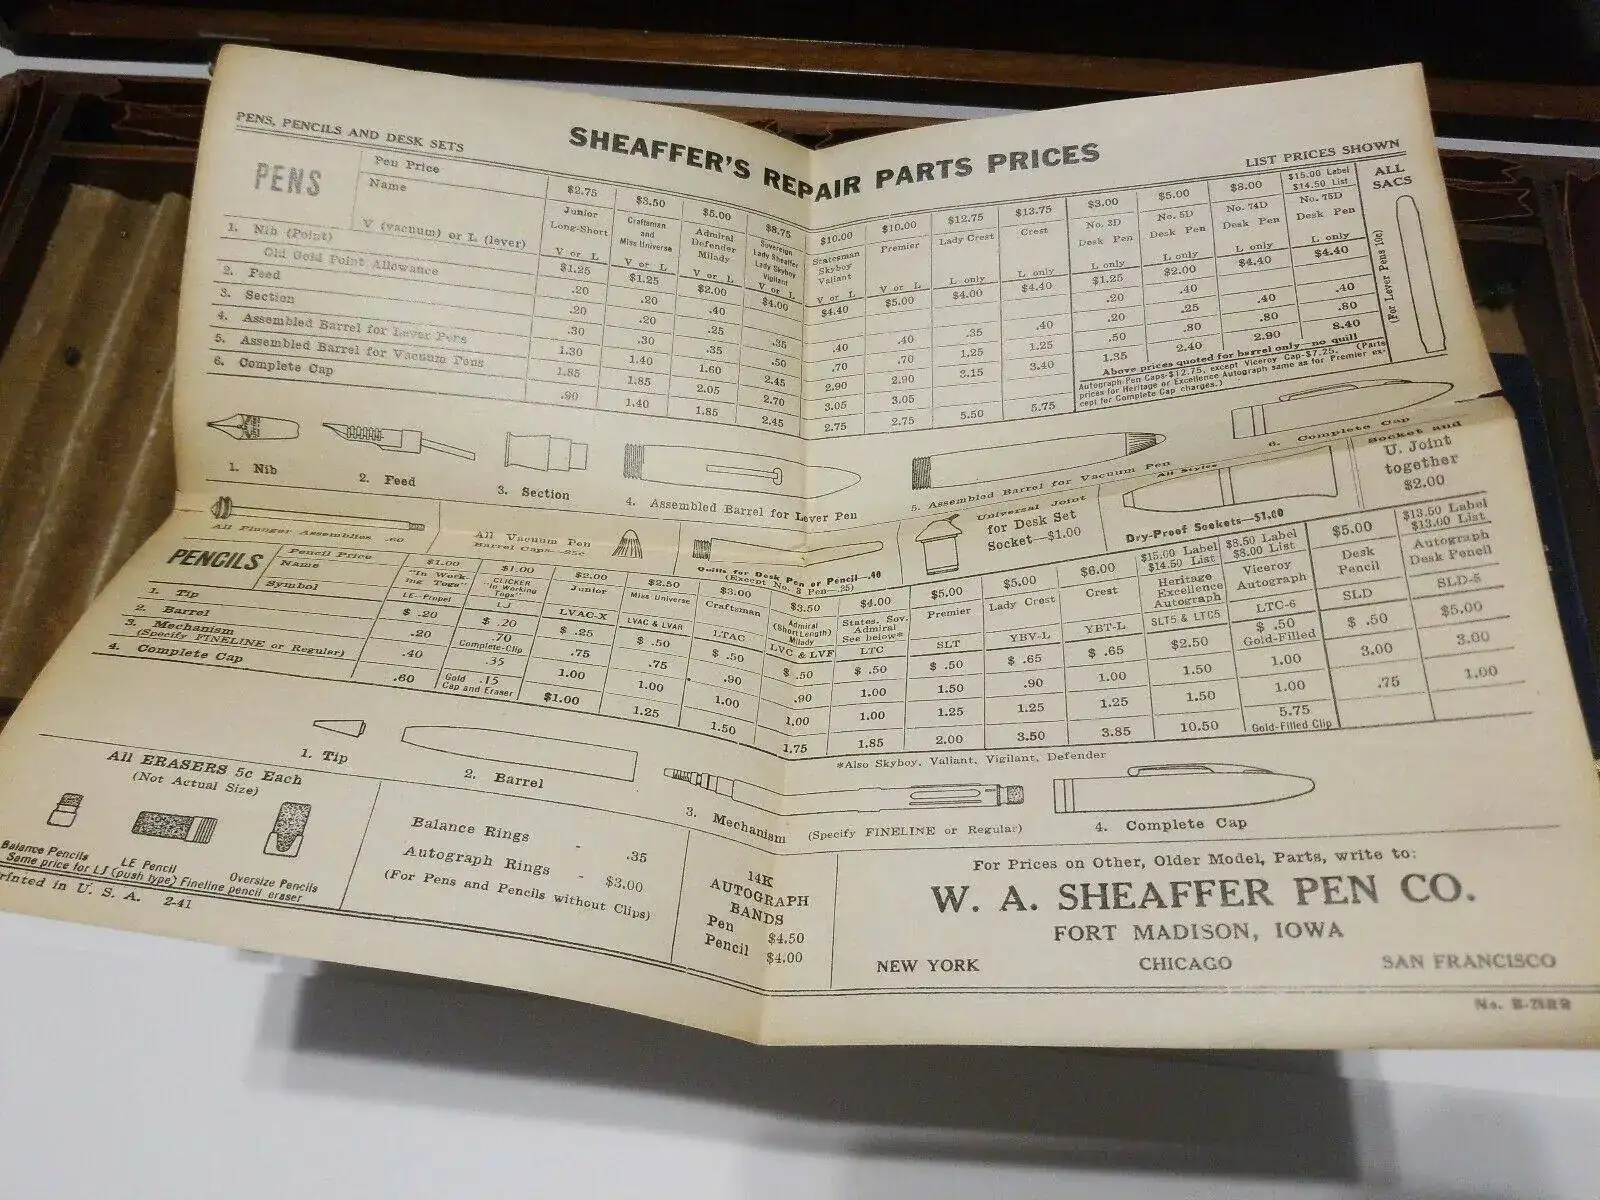 PENS, PENCILS AND DESK SETS
SHEAFFER'S REPAIR PARTS PRICES
LIST PRICES SHOWN
PENS
Pen Price $2.75 $3.50 $5.00 $8.75 $10.00 $10.00 $12.75 $13.75 $3.00 $5.00 $8.00 $15.00 Label $14.50 List
Name Junior Long-Short Craftsman and Miss Universe Admiral Defender Milady Sovereign Lady Sheaffer Lady Skyboy Vigilant Statesman Skyboy Valiant Premier Lady Crest Crest No. 3D Desk Pen No. 5D Desk Pen No. 74D Desk Pen No. 75D Desk Pen
V (vacuum) or L (lever) V or L V or L V or L V or L V or L V or L L only L only L only L only L only L only
1. Nib (Point) $1.25 $1.25 $2.00 $4.00 $4.40 $5.00 $4.00 $4.40 $1.25 $2.00 $4.40 $4.40
Old Gold Point Allowance .20 .20 .40 .20 .40
2. Feed .20 .20 .25 .35 .40 .40 .35 .40 .20 .25 .40 .40
3. Section .30 .30 .35 .50 .70 .70 1.25 1.25 .50 .80 .80 .80
4. Assembled Barrel for Lever Pens 1.30 1.40 1.60 2.45 2.90 2.90 3.15 3.40 1.35 2.40 2.90 8.40
5. Assembled Barrel for Vacuum Pens 1.85 1.85 2.05 2.70 3.05 3.05
6. Complete Cap .90 1.40 1.85 2.45 2.75 2.75 5.50 5.75
Above prices quoted for barrel only—no quill
Autograph Pen Caps-$12.75, except Viceroy Cap-$7.25. (Parts
prices for Heritage or Excellence Autograph same as for Premier ex-
cept for Complete Cap charges.)
ALL
SACS
(For Lever Pens 10c)
1. Nib
2. Feed
3. Section
4. Assembled Barrel for Lever Pen
5. Assembled Barrel for Vacuum Pen
6. Complete Cap
All Plunger Assemblies .60
All Vacuum Pen
Barrel Caps—25c
Quills for Desk Pen or Pencil—.40
(Except No. 3 Pen—.25)
Universal Joint
for Desk Set
Socket—$1.00
All Styles
Dry-Proof Sockets—$1.00
Socket and
U. Joint
together
$2.00
PENCILS
Pencil Price $1.00 $1.00 $2.00 $2.50 $3.00 $3.50 $4.00 $5.00 $5.00 $6.00 $15.00 Label $14.50 List $8.50 Label $8.00 List $5.00 $13.50 Label $13.00 List
Name "In Working Togs" CLICKER "In-Working Togs" Junior Miss Universe Craftsman Admiral (Short Length) Milady States. Sov. Admiral See below* Premier Lady Crest Crest Heritage Excellence Autograph Viceroy Autograph Desk Pencil Autograph Desk Pencil
Symbol LE—Propel LJ LVAC-X LVAC & LVAR LTAC LVC & LVF LTC SLT YBV-L YBT-L SLT5 & LTC5 LTC-6 SLD SLD-5
1. Tip $ .20 $ .20 $ .25 $ .50 $ .50 $ .50 $ .50 $ .50 $ .65 $ .65 $2.50 $ .50 Gold-Filled $ .50 $5.00
2. Barrel .20 .70 Complete-Clip .75 .75 .90 .90 1.00 1.50 .90 1.00 1.50 1.00 3.00 3.00
3. Mechanism (Specify FINELINE or Regular) .40 .35 1.00 1.00 1.00 1.00 1.00 1.25 1.25 1.25 1.50 1.00 .75 1.00
4. Complete Cap .60 Gold .15 Cap and Eraser $1.00 1.25 1.50 1.75 1.85 2.00 3.50 3.85 10.50 5.75 Gold-Filled Clip
*Also Skyboy, Valiant, Vigilant, Defender
1. Tip
2. Barrel
3. Mechanism (Specify FINELINE or Regular)
4. Complete Cap
All ERASERS 5c Each
(Not Actual Size)
Balance Pencils
Same price for LJ (push type) Fineline pencil eraser
LE Pencil
Oversize Pencils
Printed in U. S. A. 2-41
Balance Rings - .35
Autograph Rings - $3.00
(For Pens and Pencils without Clips)
14K
AUTOGRAPH
BANDS
Pen $4.50
Pencil $4.00
For Prices on Other, Older Model, Parts, write to:
W. A. SHEAFFER PEN CO.
FORT MADISON, IOWA
NEW YORK CHICAGO SAN FRANCISCO